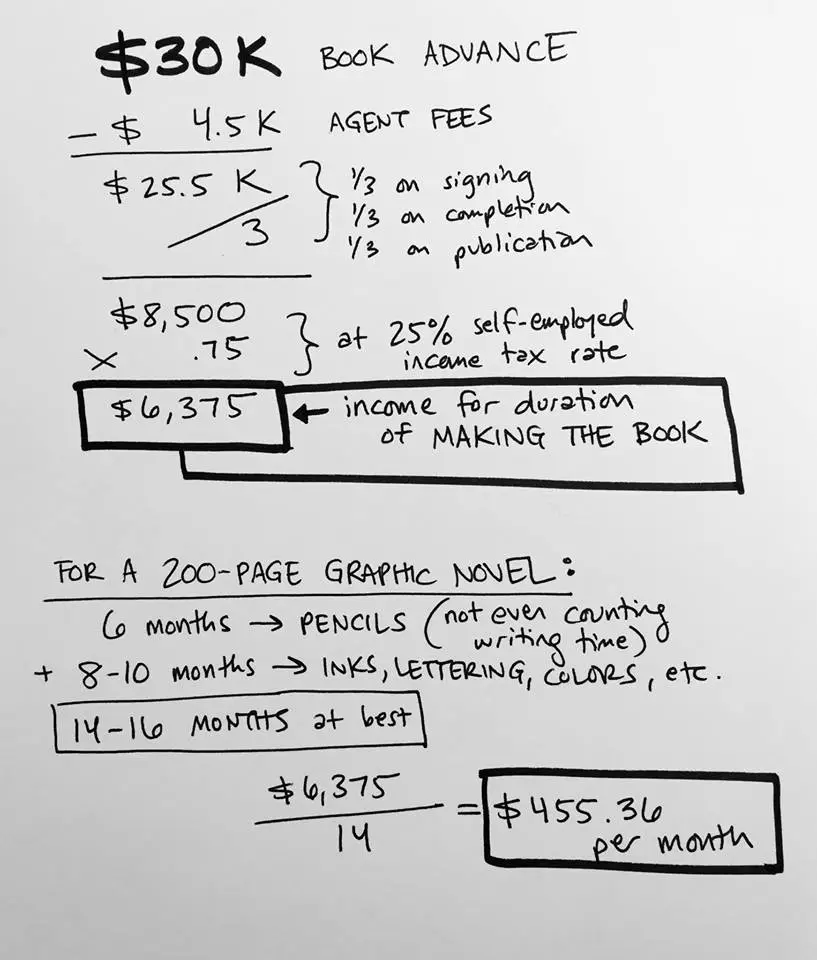 $30K BOOK ADVANCE
- $ 4.5K AGENT FEES
$25.5 K
/ 3
} 1/3 on signing
1/3 on completion
1/3 on publication
$8,500
x .75
} at 25% self-employed
income tax rate
$6,375 ← income for duration
of MAKING THE BOOK
FOR A 200-PAGE GRAPHIC NOVEL:
6 months → PENCILS (not even counting
writing time)
+ 8-10 months → INKS, LETTERING, COLORS, etc.
14-16 MONTHS at best
$6,375
14
= $455.36
per month